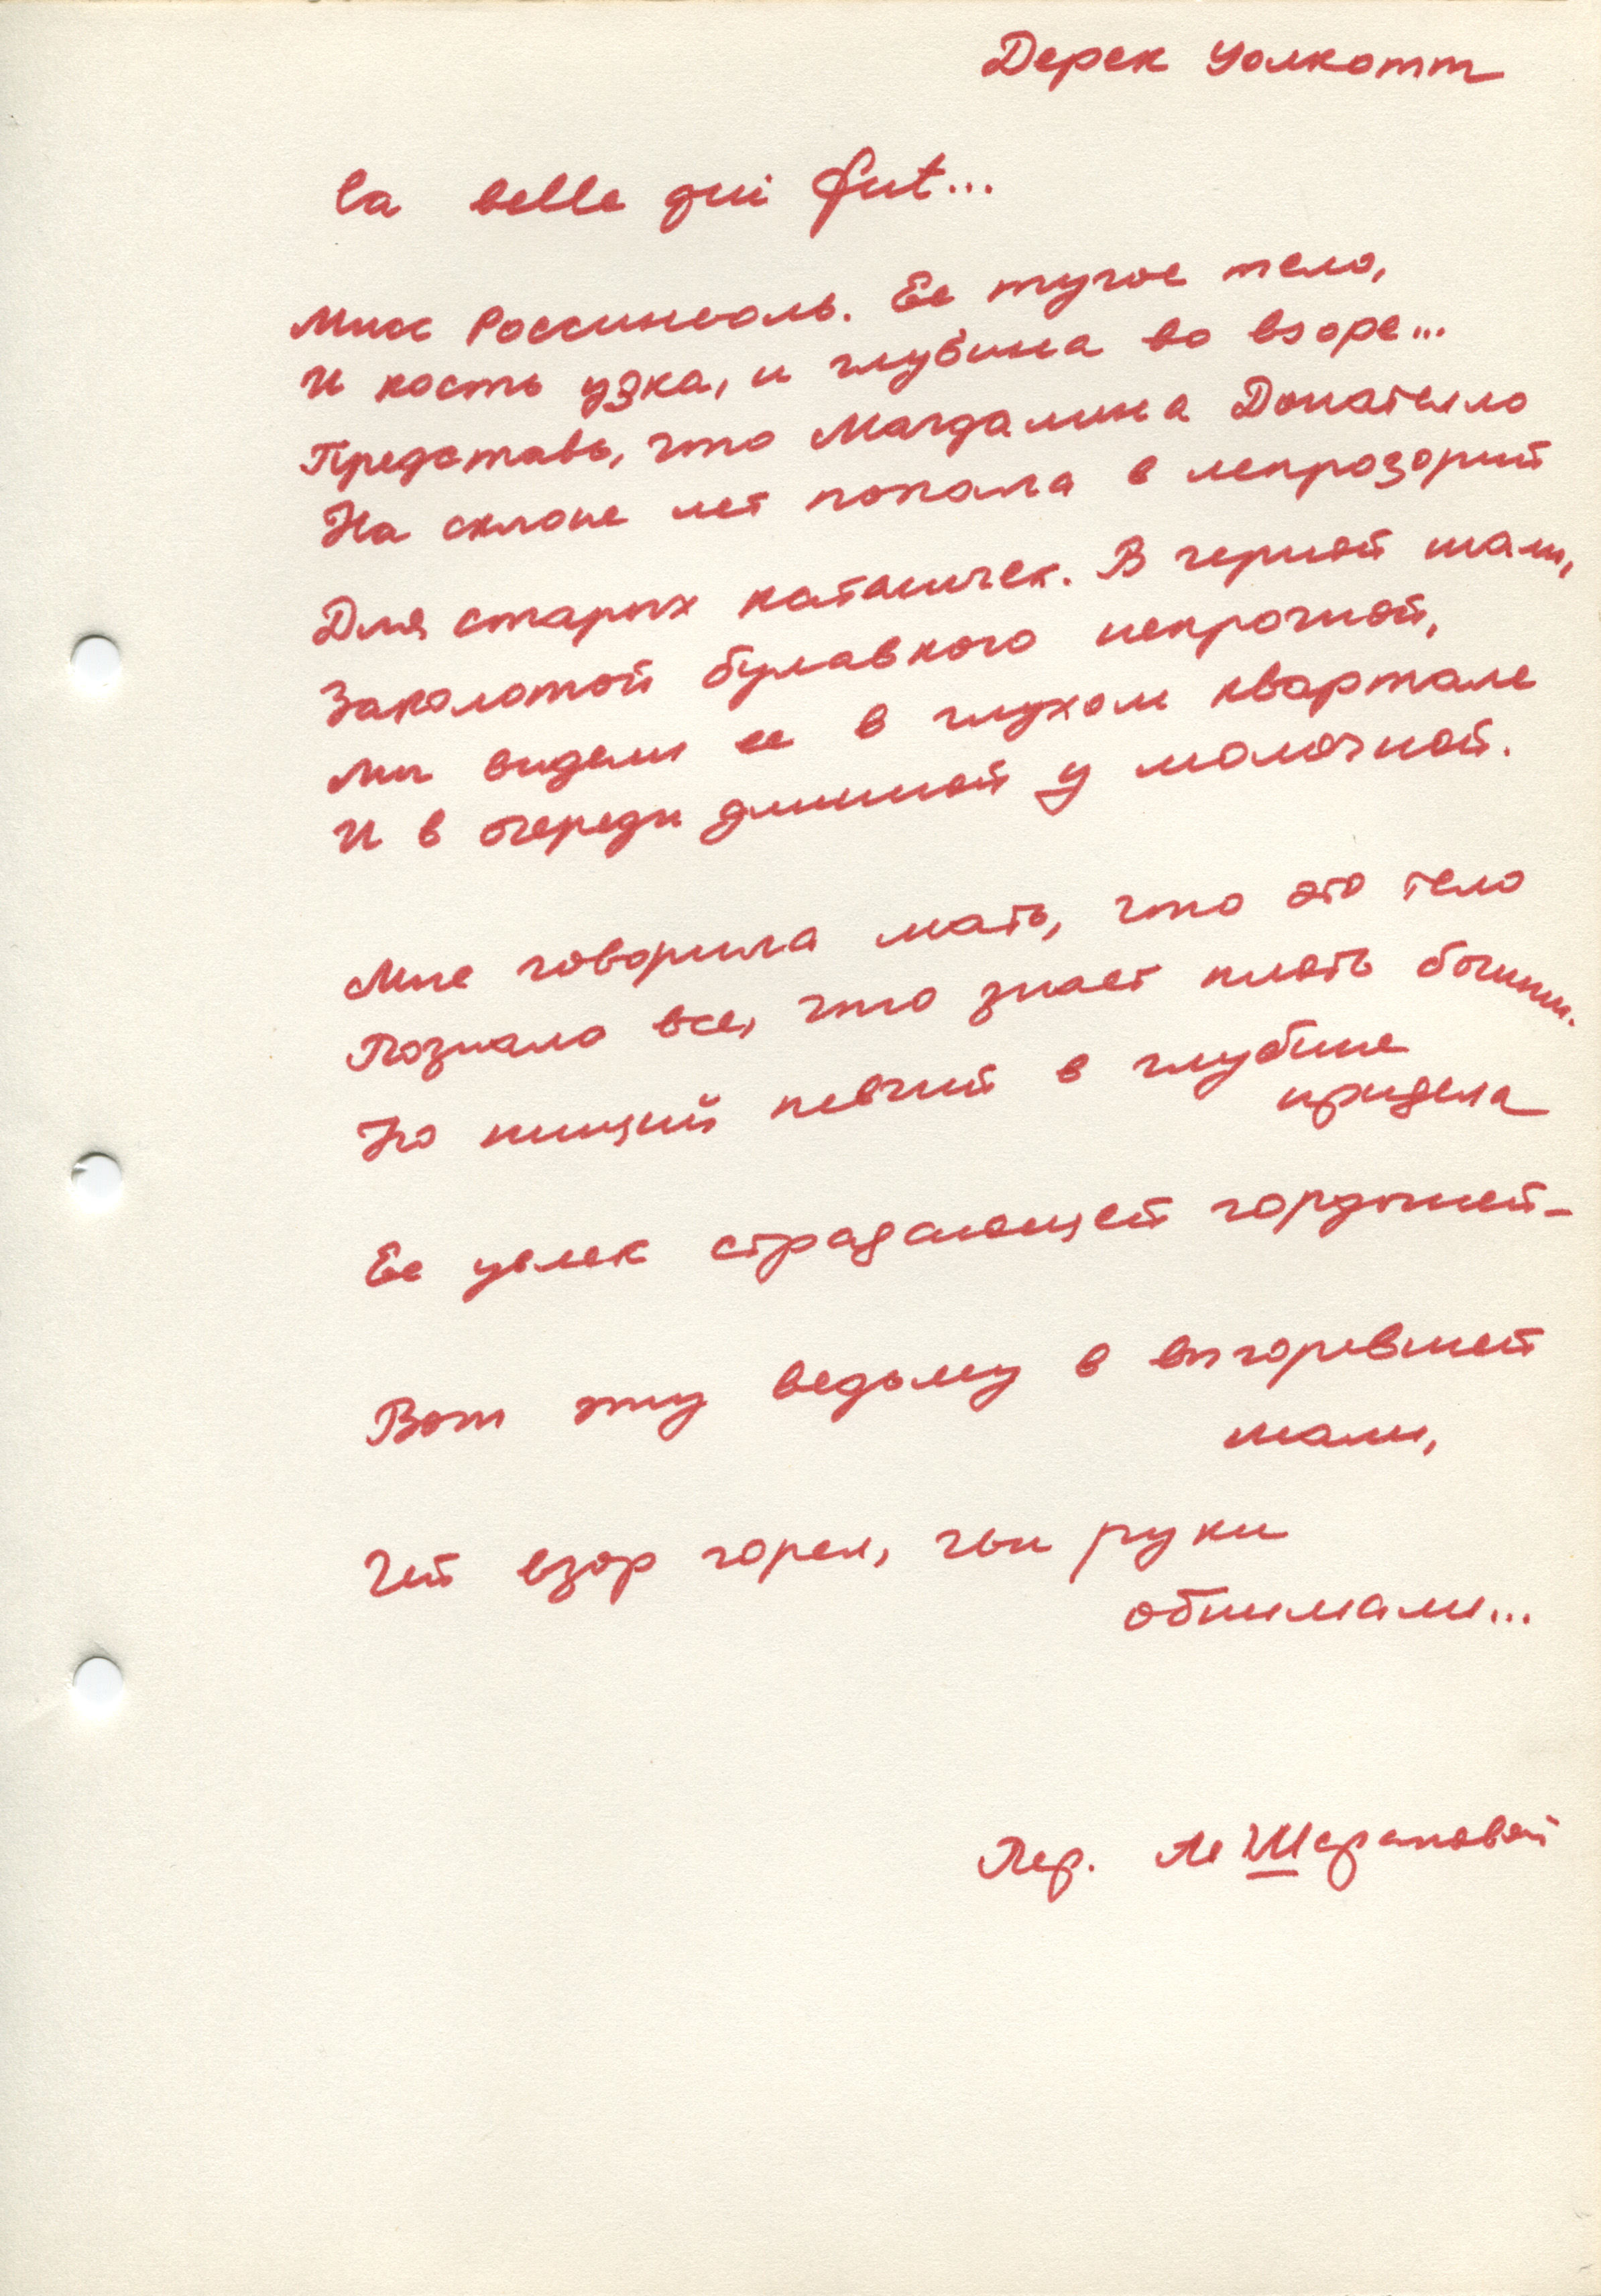 Дерек Уолкотт
la belle qui fut...
Мисс Россиньоль. Ее тугое тело,
И кость узка, и глубина во взоре...
Представь, что Магдалина Донателло
На склоне лет попала в лепрозорий
Для старых католичек. В черной шали,
Заколотой булавкою непрочной,
Мы видели ее в глухом квартале
И в очереди длинной у молочной.
Мне говорила мать, что это тело
Познало все, что знает плоть богини.
Но нищий певчий в глубине
придела
Ее увлек страдающей гордыней –
Вот эту ведьму в выгоревшей
шали,
Чей взор горел, чьи руки
обнимали...
Пер. М Шараповой